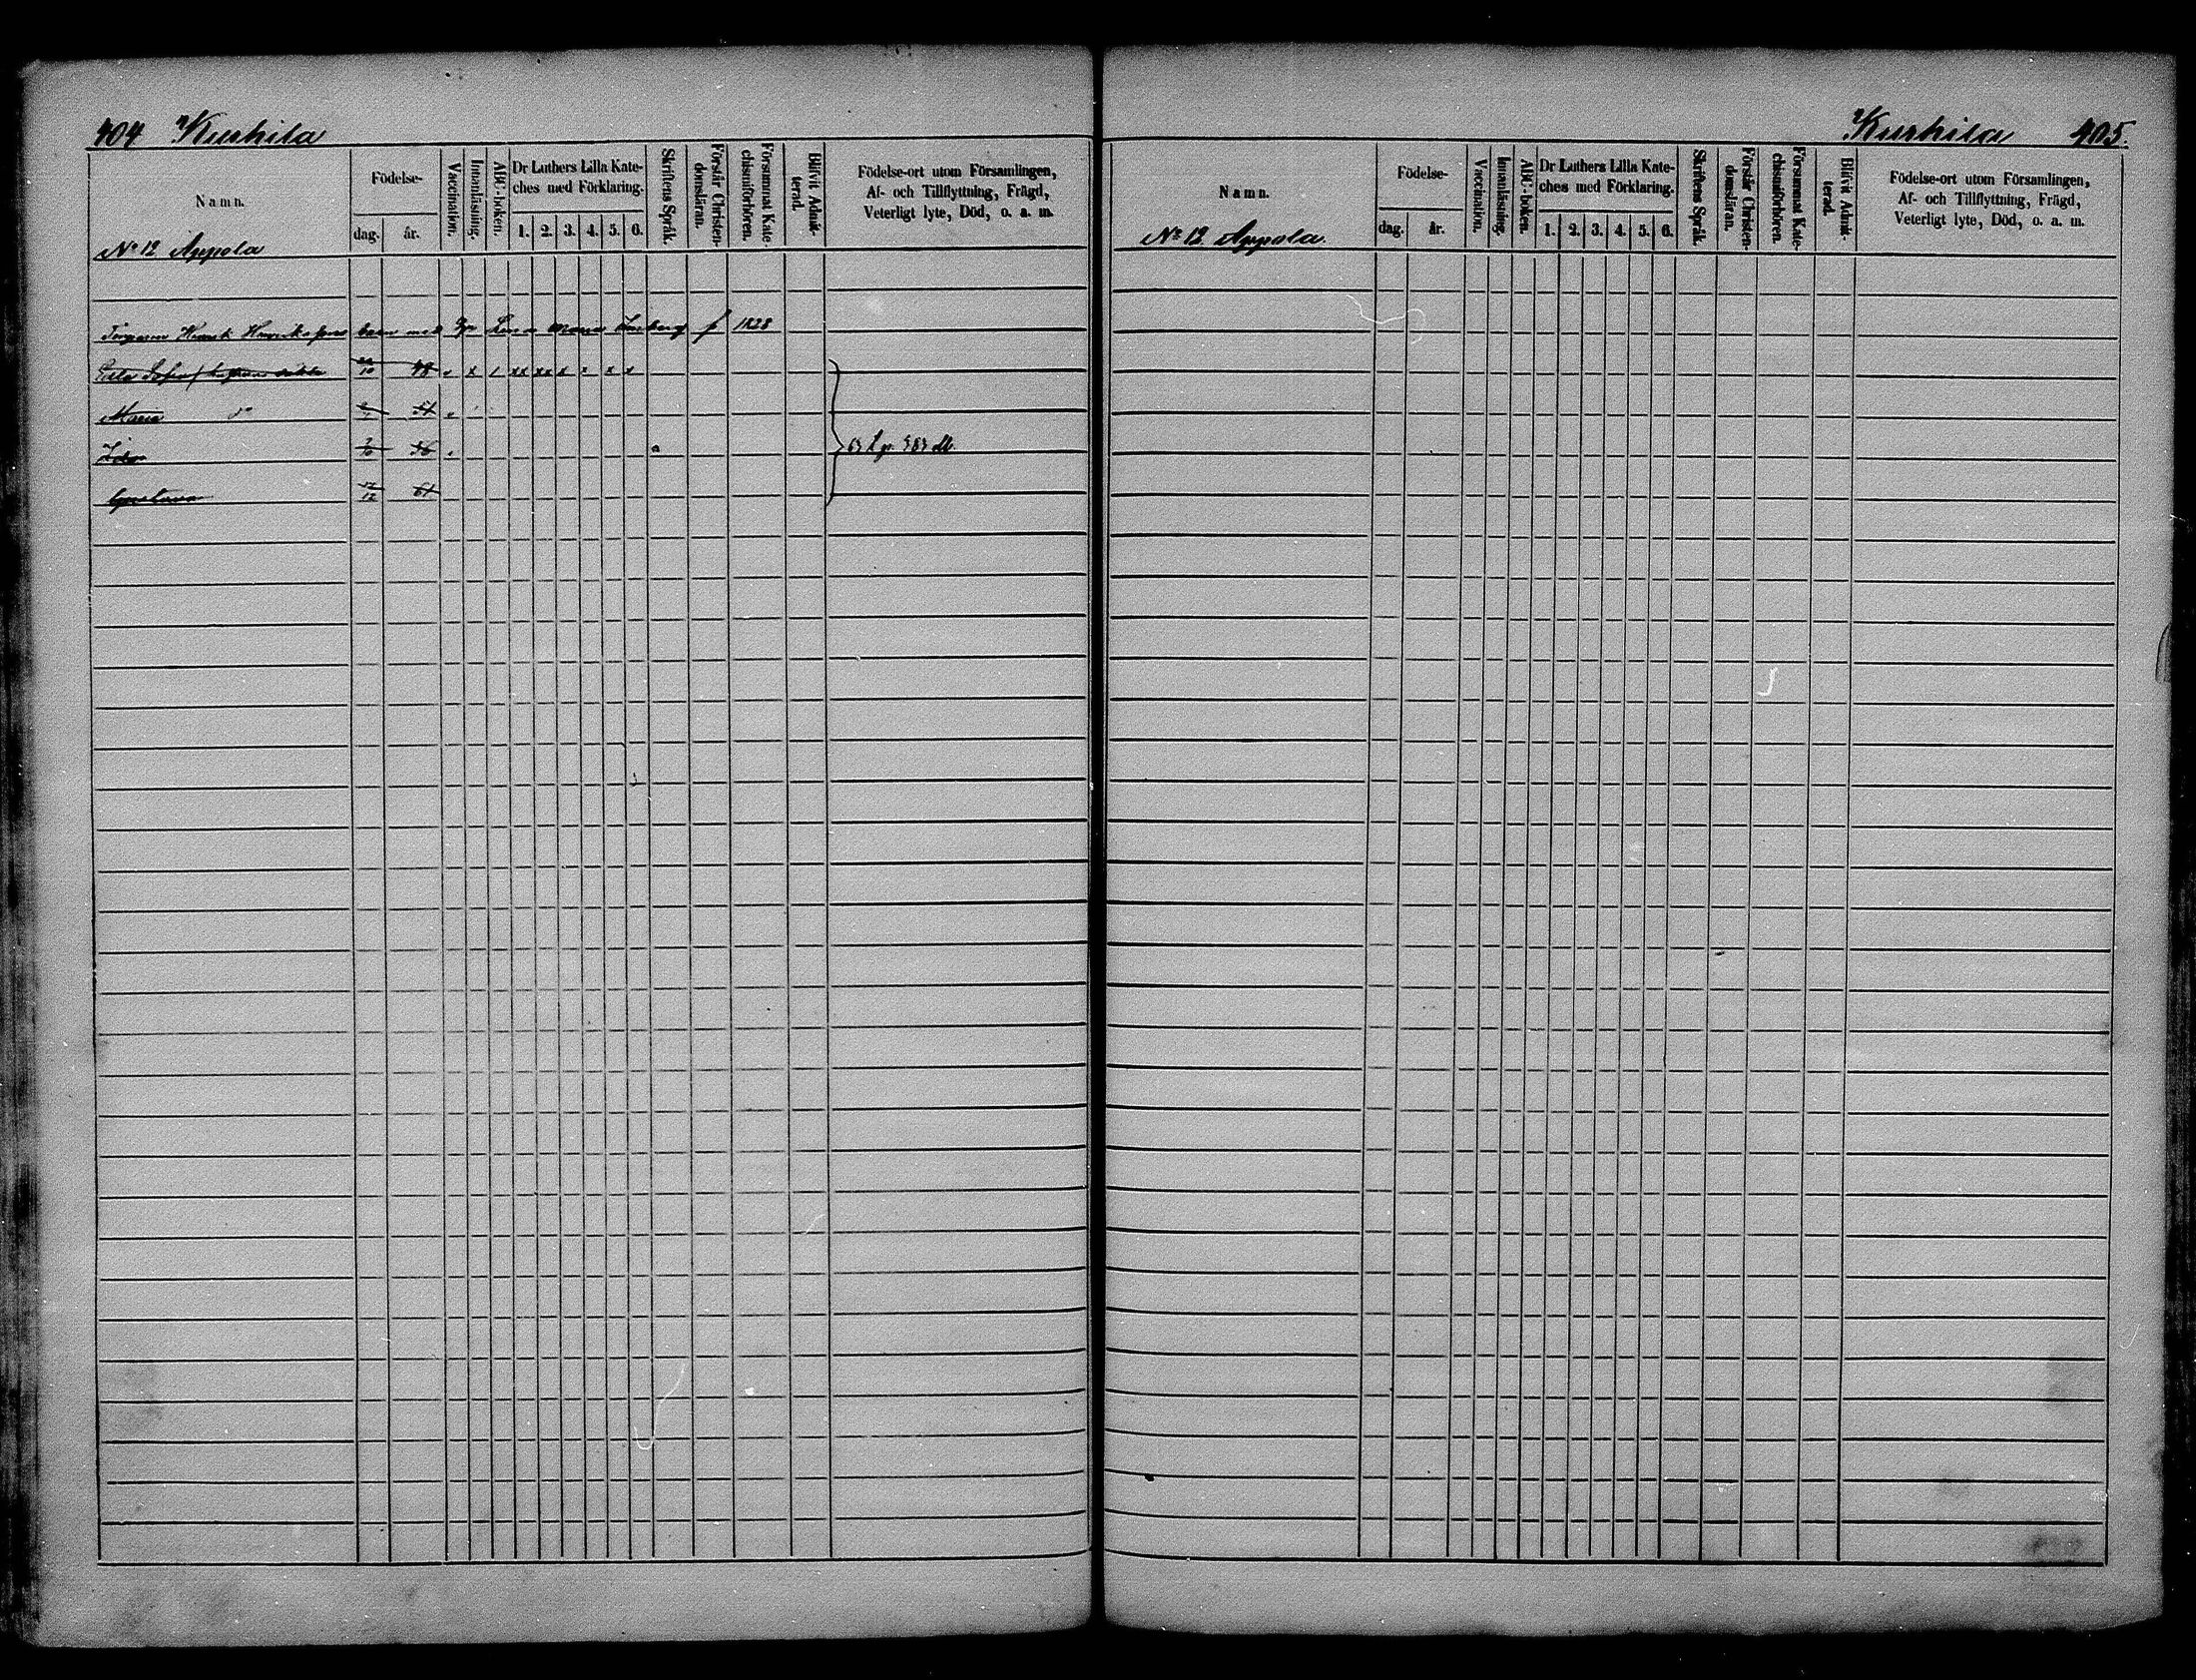 404 Kurkila
Namn.
Födelse-
dag.
år.
Vaccination.
Innanläsning.
ABC-boken.
Dr Luthers Lilla Kate-
ches med Förklaring.
1. 2. 3. 4. 5. 6.
Skriftens Språk.
Förstår Christen-
domsläran.
Försummat Kate-
chismiförhören.
Blifvit Admit-
terad.
Födelse-ort utom Församlingen,
Af- och Tillflyttning, Frägd,
Veterligt lyte, Död, o. a. m.
No 12 Appola
Henrik barn med Lena Maria f 1828
Sofia 10 48 x xx xx x x x x
Maria do
Ida
10 56
63 483
Gustava 12 61
Kurkila 405.
Namn.
Födelse-
dag.
år.
Vaccination.
Innanläsning.
ABC-boken.
Dr Luthers Lilla Kate-
ches med Förklaring.
1. 2. 3. 4. 5. 6.
Skriftens Språk.
Förstår Christen-
domsläran.
Försummat Kate-
chismiförhören.
Blifvit Admit-
terad.
Födelse-ort utom Församlingen,
Af- och Tillflyttning, Frägd,
Veterligt lyte, Död, o. a. m.
No 12 Appola.